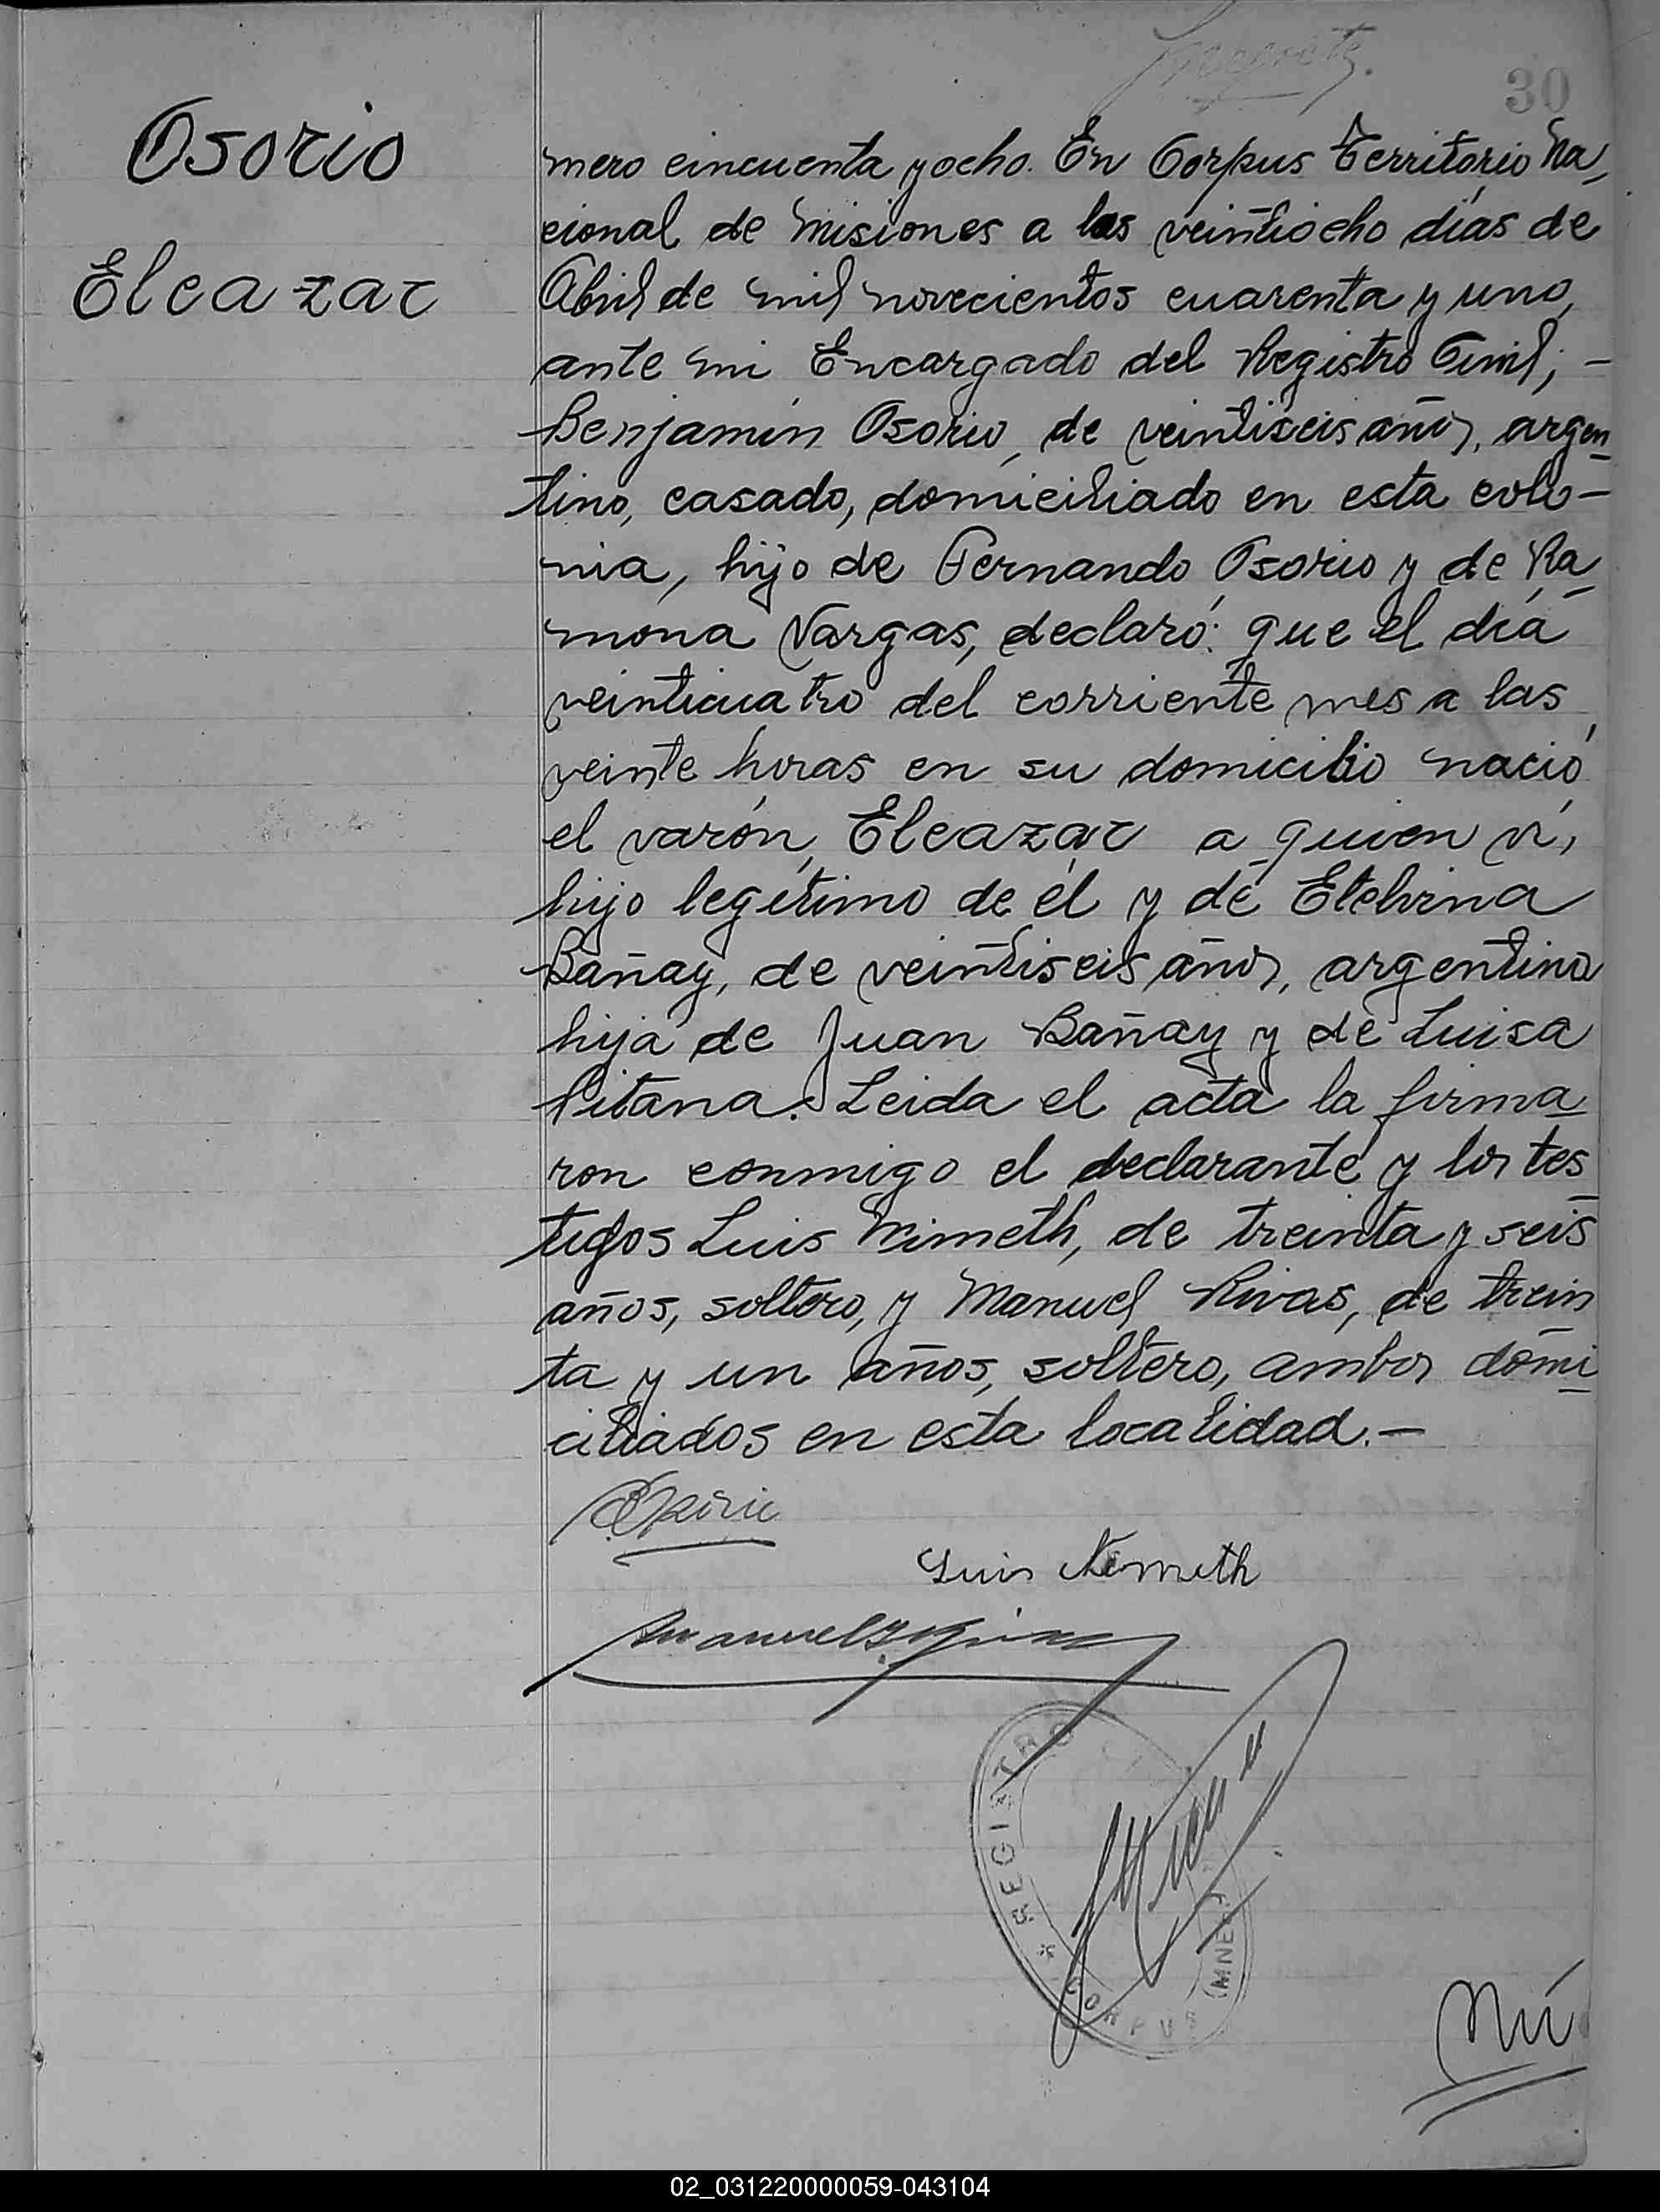 30
Osorio
Eleazar
mero cincuenta y ocho. En Corpus Territorio Na
cional de Misiones a los veintiocho días de
Abril de mil novecientos cuarenta y uno,
ante mi Encargado del Registro Civil; —
Benjamín Osorio, de veintiseis años, argen
tino, casado, domiciliado en esta colo—
nia, hijo de Fernando Osorio y de Ra
mona Vargas, declaró: que el día
veinticuatro del corriente mes a las
veinte horas en su domicilio nació
el varón, Eleazar a quien ví,
hijo legítimo de él y de Etelvina
Bañay, de veintiseis años, argentina
hija de Juan Bañay y de Luisa
Pitana. Leida el acta la firma
ron conmigo el declarante y los tes
tigos Luis Nimeth, de treinta y seis
años, soltero, y Manuel Rivas, de trein
ta y un años, soltero, ambos domi
ciliados en esta localidad.—
Luis Nemeth
REGISTRO
CORPUS (MNES)
Nú
02_031220000059-043104